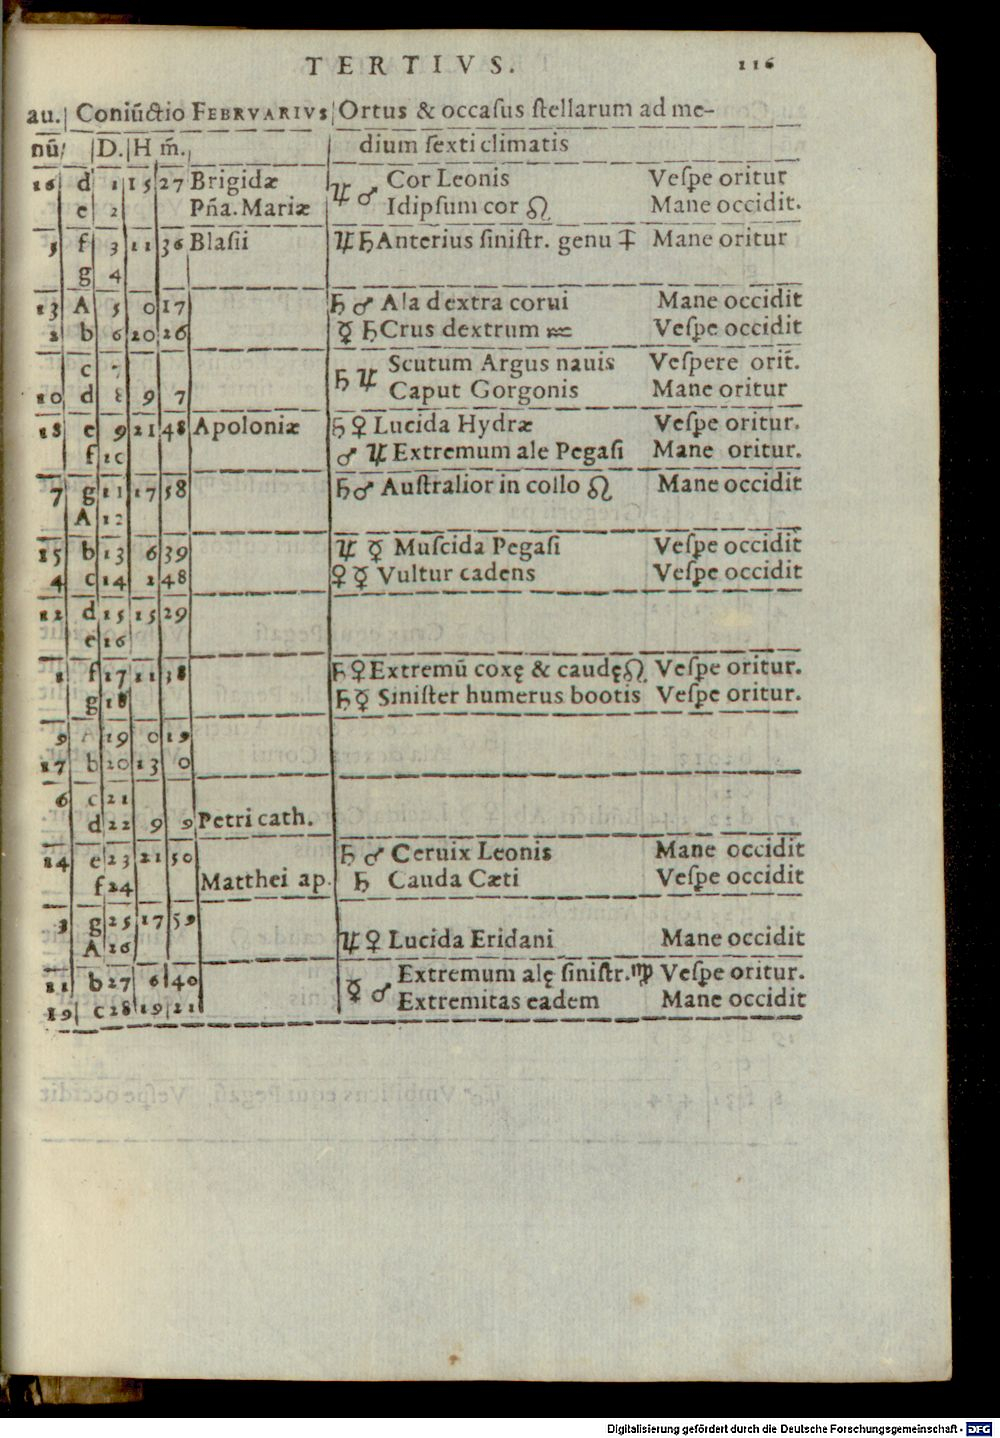 TERTIVS. 116
au. Coniũctio FEBRVARIVS Ortus & occaſus ſtellarum ad me-
nũ D. H m̃. dium ſexti climatis
16 d 1 15 27 Brigidæ ♃ ♂ Cor Leonis Veſpe oritur
e 2 Pña. Mariæ Idipſum cor ♌ Mane occidit.
5 f 3 11 36 Blaſii ♃ ♄ Anterius ſiniſtr. genu ♐ Mane oritur
g 4
13 A 5 0 17 ♄ ♂ Ala dextra corui Mane occidit
2 b 6 20 26 ☿ ♄ Crus dextrum ♒ Veſpe occidit
c 7 ♄ ♃ Scutum Argus nauis Veſpere orit̃.
10 d 8 9 7 Caput Gorgonis Mane oritur
18 e 9 21 48 Apoloniæ ♄ ♀ Lucida Hydræ Veſpe oritur.
f 10 ♂ ♃ Extremum ale Pegaſi Mane oritur.
7 g 11 17 58 ♄ ♂ Auſtralior in collo ♌ Mane occidit
A 12
15 b 13 6 39 ♃ ☿ Muſcida Pegaſi Veſpe occidit
4 c 14 1 48 ♀ ☿ Vultur cadens Veſpe occidit
12 d 15 15 29
e 16
1 f 17 11 38 ♄ ♀ Extremũ coxę & caudę ♌ Veſpe oritur.
g 18 ♄ ☿ Siniſter humerus bootis Veſpe oritur.
9 A 19 0 19
17 b 20 13 0
6 c 21
d 22 9 9 Petri cath.
14 e 23 21 50 ♄ ♂ Ceruix Leonis Mane occidit
f 24 Matthei ap. ♄ Cauda Cæti Veſpe occidit
3 g 25 17 59
A 26 ♃ ♀ Lucida Eridani Mane occidit
11 b 27 6 40 ☿ ♂ Extremum alę ſiniſtr. ♍ Veſpe oritur.
19 c 28 19 21 Extremitas eadem Mane occidit
Digitalisierung gefördert durch die Deutsche Forschungsgemeinschaft - DFG